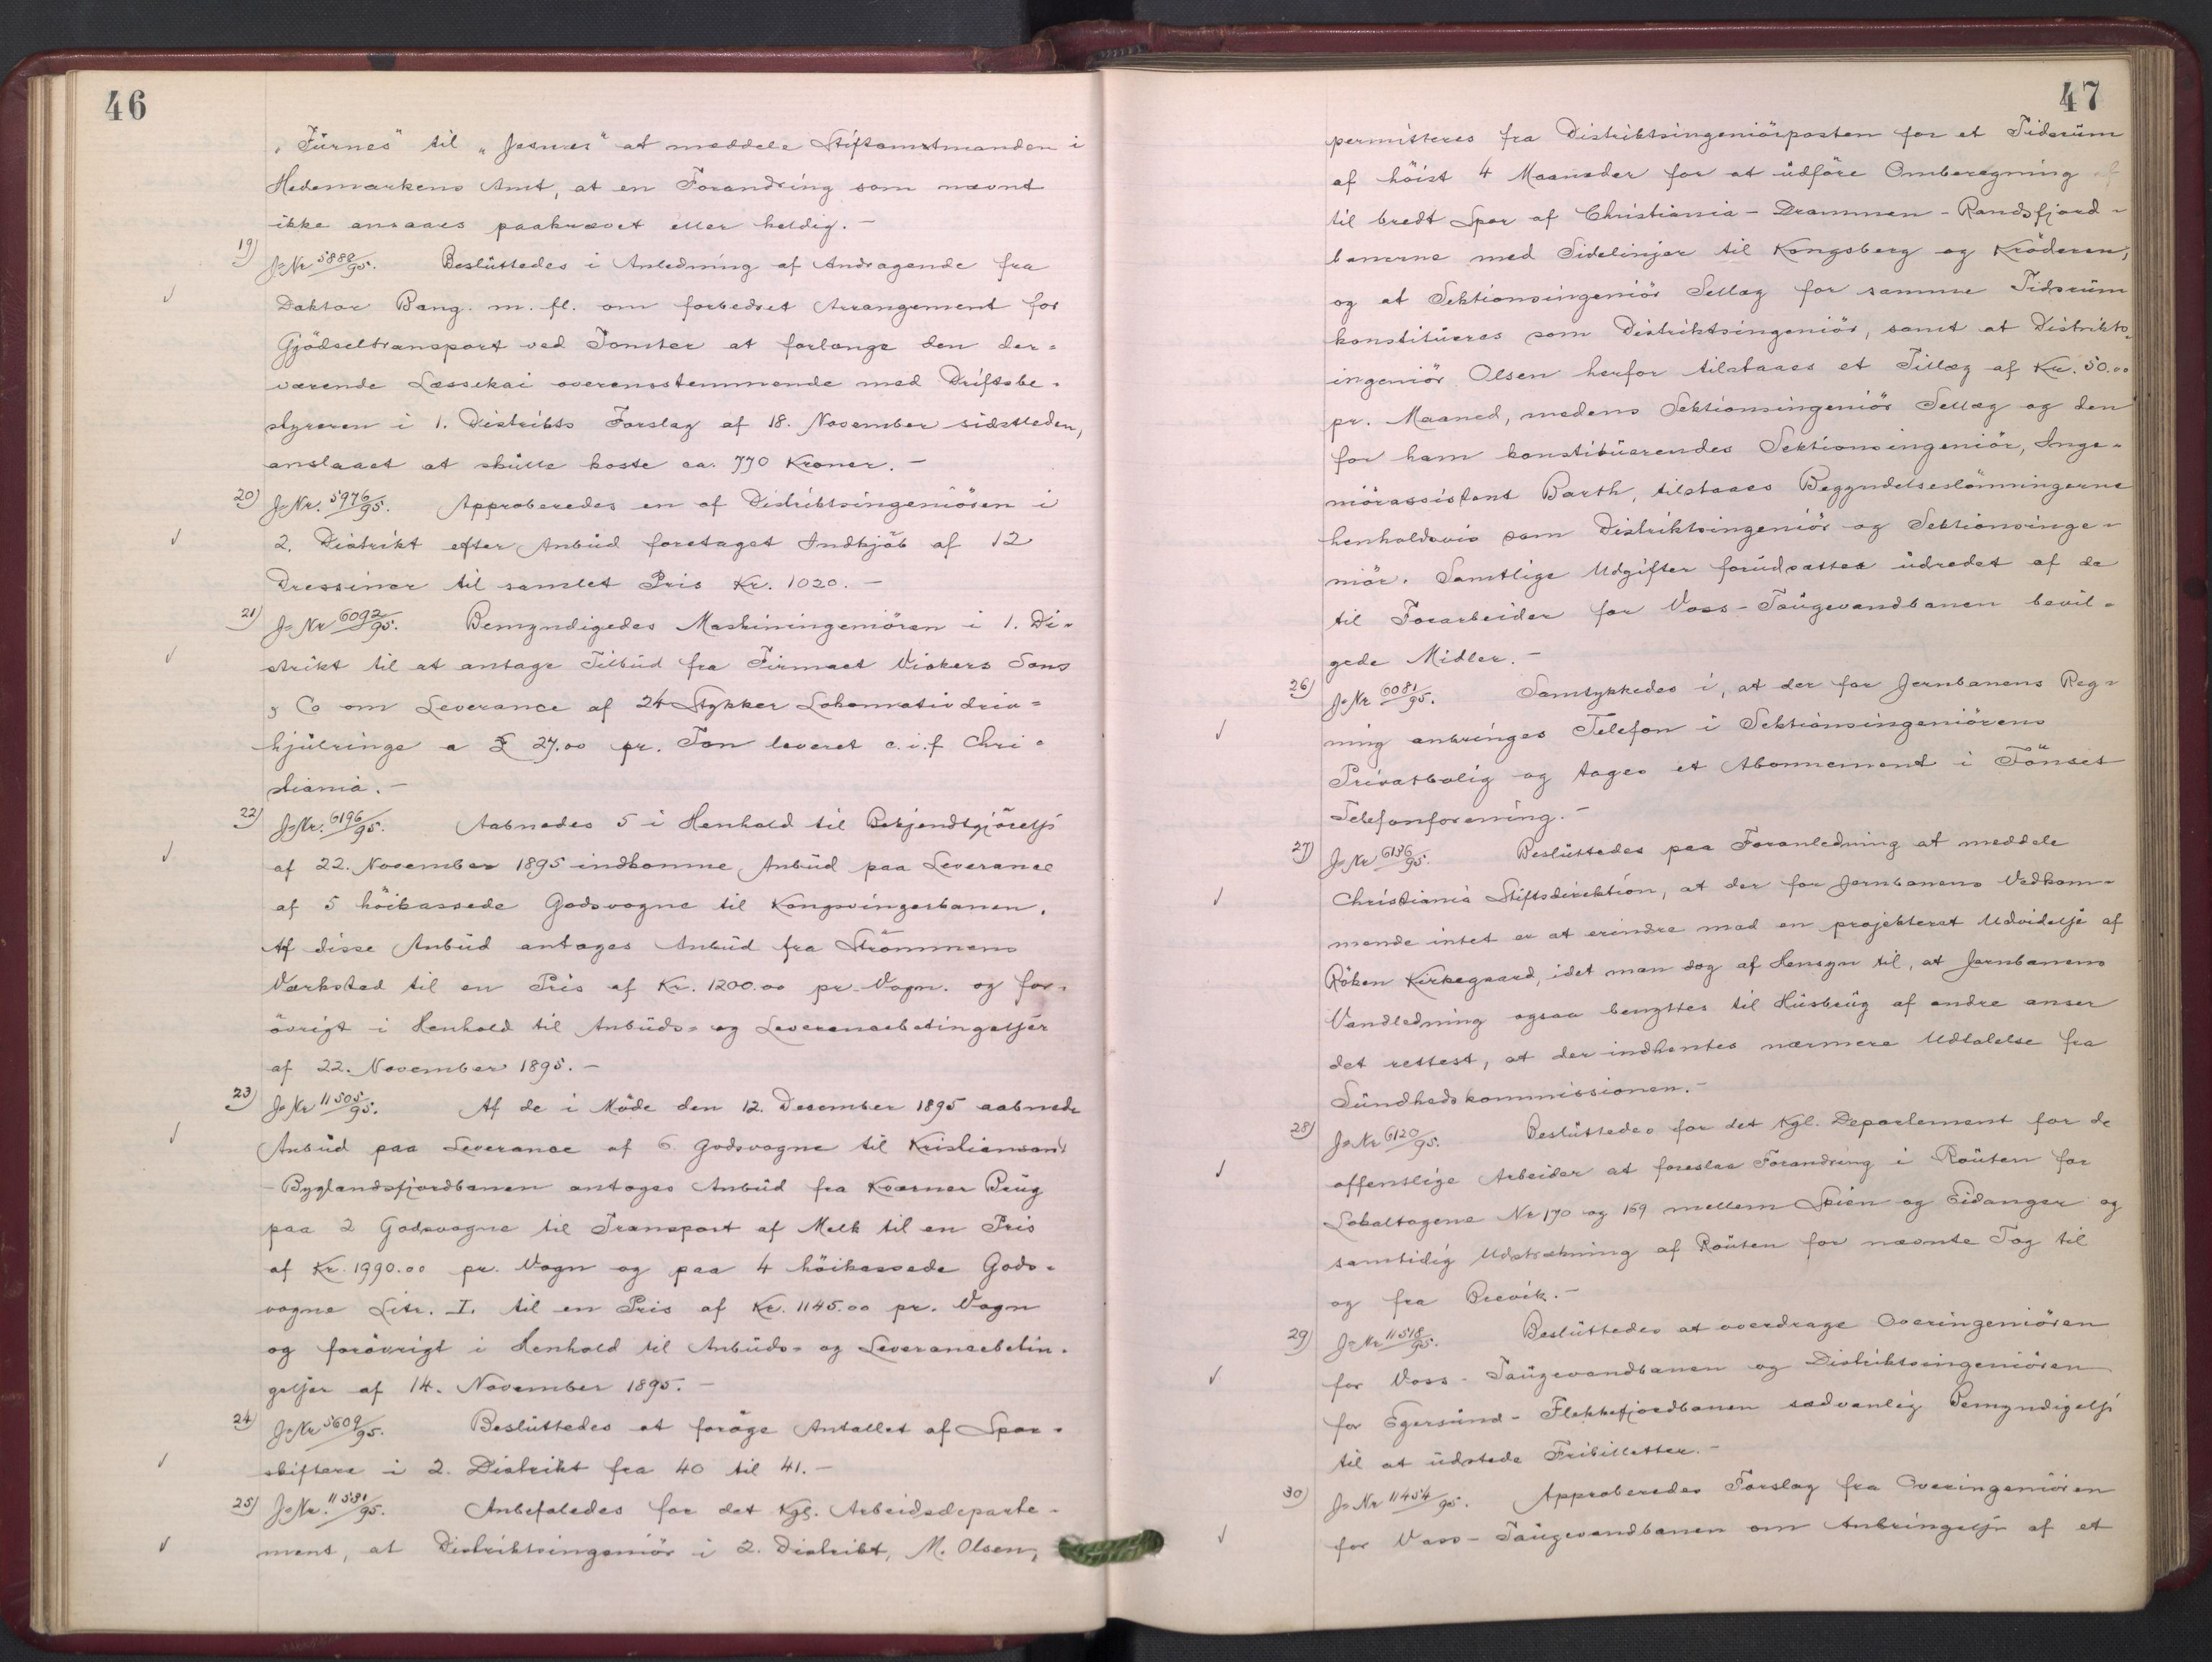 46
„Furnes" til „Jesnes" at meddele Stiftamtmanden i
Hedemarkens Amt, at en Forandring som nævnt
ikke ansaaes paakrævet eller heldig. —
19) J=Nr 5888/95. Besluttedes i Anledning af Andragende fra
Doktor Bang. m. fl. om forbedret Arrangement for
Gjödseltransport ved Tomter at forlænge den der=
værende Læssekai overensstemmende med Driftsbe=
styreren i 1. Distrikts Forslag af 18. November sidstleden,
anslaaet at skulle koste ca. 770 Kroner. —
20) J=Nr. 5976/95. Approberedes en af Distriktsingeniören i
2. Distrikt efter Anbud foretaget Indkjöb af 12
Dressiner til samlet Pris Kr. 1020. —
21) J=Nr 6092/95. Bemyndigedes Maskiningeniören i 1. Di=
strikt til at antage Tilbud fra Firmaet Vickers Sons
& Co om Leverance af 24 Stykker Lokomotivdriv=
hjulringe a £ 27.00 pr. Ton leveret c.i.f Chri=
stiania. —
22) J=Nr. 6196/95. Aabnedes 5 i Henhold til Bekjendtgjörelse
af 22. November 1895 indkomne Anbud paa Leverance
af 5 höikassede Godsvogne til Kongsvingerbanen.
Af disse Anbud antages Anbud fra Strömmens
Værksted til en Pris af Kr. 1200.00 pr. Vogn. og for=
övrigt i Henhold til Anbuds= og Leverancebetingelser
af 22. November 1895. —
23) J=Nr 11505/95. Af de i Möde den 12. Desember 1895 aabnede
Anbud paa Leverance af 6 Godsvogne til Kristiansand
- Byglandsfjordbanen antages Anbud fra Kværner Brug
paa 2 Godsvogne til Transport af Melk til en Pris
af Kr. 1990.00 pr. Vogn og paa 4 höikassede Gods=
vogne Litr. I. til en Pris af Kr. 1145.00 pr. Vogn
og forövrigt i Henhold til Anbuds= og Leverancebetin=
gelser af 14. November 1895. —
24) J=Nr 5609/95. Besluttedes at foröge Antallet af Spor=
skiftere i 2. Distrikt fra 40 til 41. —
25) J=Nr. 11531/95. Anbefaledes for det Kgl. Arbeidsdeparte=
ment, at Distriktsingeniör i 2. Distrikt, M. Olsen,
47
permitteres fra Distriktsingeniörposten for et Tidsrum
af höist 4 Maaneder for at udföre Omberegning af
til bredt Spor af Christiania - Drammen - Randsfjord=
banerne med Sidelinjer til Kongsberg og Kröderen,
og at Sektionsingeniör Sellæg for samme Tidsrum
konstitueres som Distriktsingeniör, samt at Distrikts=
ingeniör Olsen herfor tilstaaes et Tillæg af Kr. 50.00
pr. Maaned, medens Sektionsingeniör Sellæg og den
for ham konstituerendes Sektionsingeniör, Inge=
niörassistent Barth, tilstaaes Begyndelseslönningerne
henholdsvis som Distriktsingeniör og Sektionsinge=
niör. Samtlige Udgifter forudsættes udredet af de
til Forarbeider for Voss - Taugevandbanen bevil=
gede Midler. —
26) J=Nr 6081/95. Samtykkedes i, at der for Jernbanens Reg=
ning anbringes Telefon i Sektionsingeniörens
Privatbolig og tages et Abonnement i Tönset
Telefonforening. —
27) J=Nr 6136/95. Besluttedes paa Foranledning at meddele
Christiania Stiftsdirektion, at der for Jernbanens Vedkom=
mende intet er at erindre mod en projekteret Udvidelse af
Röken Kirkegaard, idet man dog af Hensyn til, at Jernbanens
Vandledning ogsaa benyttes til Husbrug af andre anser
det rettest, at der indhentes nærmere Udtalelse fra
Sundhedskommissionen. —
28) J=Nr 6120/95. Besluttedes for det Kgl. Departement for de
offentlige Arbeider at foreslaa Forandring i Routen for
Lokaltogene Nr 170 og 169 mellem Skien og Eidanger og
samtidig Udstrækning af Routen for nævnte Tog til
og fra Brevik. —
29) J=Nr 11518/95. Besluttedes at overdrage Overingeniören
for Voss - Taugevandbanen og Distriktsingeniören
for Egersund - Flekkefjordbanen sædvanlig Bemyndigelse
til at udstede Fribilletter. —
30) J=Nr 11454/95. Approberedes Forslag fra Overingeniören
for Voss - Taugevandbanen om Anbringelse af et